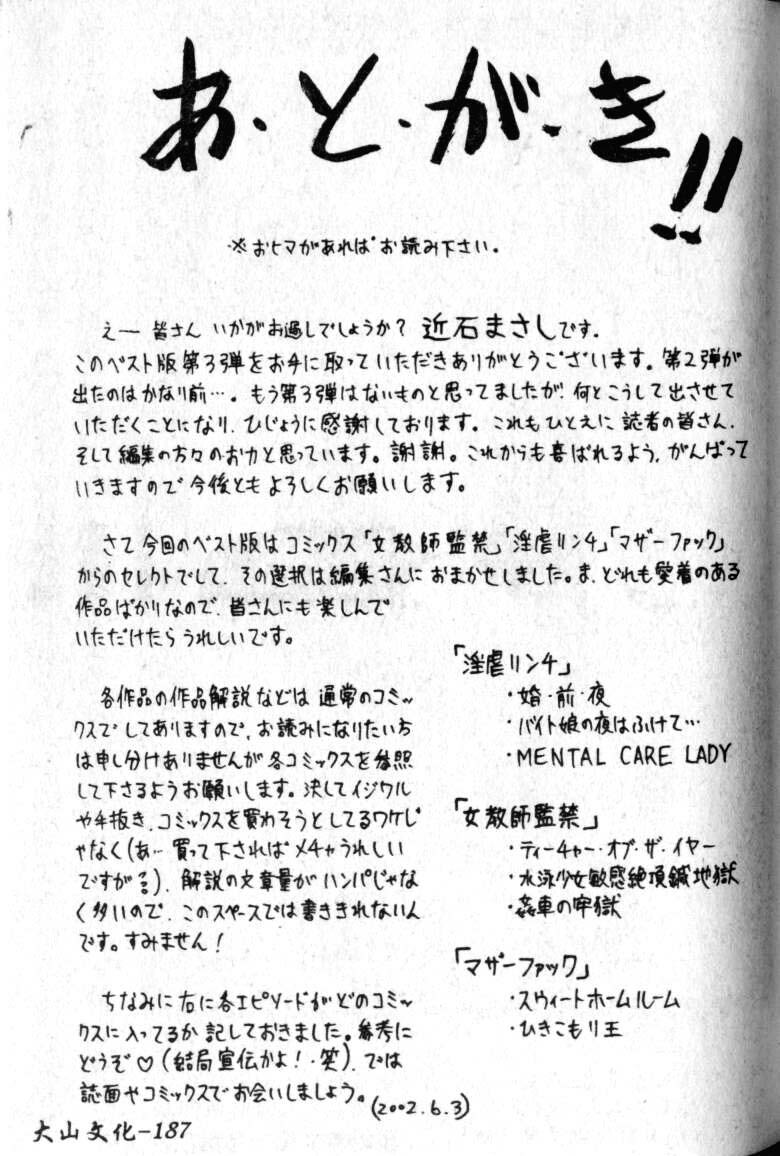 あ・と・が・き!!
※おヒマがあればお読み下さい。
えー 皆さん いかがお過しでしょうか? 近石まさしです.
このベスト版第3弾をお手に取っていただきありがとうございます。第2弾が
出たのはかなり前…。もう第3弾はないものと思ってましたが! 何とこうして出させて
いただくことになり、ひじょうに感謝しております。これもひとえに読者の皆さん、
そして編集の方々のお力と思っています。謝謝。これからも喜ばれるよう、がんばって
いきますので今後ともよろしくお願いします。
さて今回のベスト版はコミックス「女教師監禁」「淫虐リンチ」「マザーファック」
からのセレクトでして、その選択は編集さんにおまかせしました。ま、どれも愛着のある
作品ばかりなので、皆さんにも楽しんで
いただけたらうれしいです。
各作品の作品解説などは 通常のコミッ
クスでしてありますので、お読みになりたい方
は申し分けありませんが各コミックスを参照
して下さるようお願いします。決してイジワル
や手抜き、コミックスを買わそうとしてるワケじ
ゃなく(あ… 買って下さればメチャうれしい
ですが), 解説の文章量がハンパじゃな
く多いので、このスペースでは書ききれないん
です。すみません!
ちなみに右に各エピソードがどのコミッ
クスに入ってるか記しておきました。参考に
どうぞ♡(結局宣伝かよ!・笑)、では
誌面やコミックスでお会いしましょう。(2002.6.3)
「淫虐リンチ」
・婚・前・夜
・バイト娘の夜はふけて…
・MENTAL CARE LADY
「女教師監禁」
・ティーチャー・オブ・ザ・イヤー
・水泳少女敏感絶頂鍼地獄
・姦車の牢獄
「マザーファック」
・スウィートホームルーム
・ひきこもり王
大山文化-187